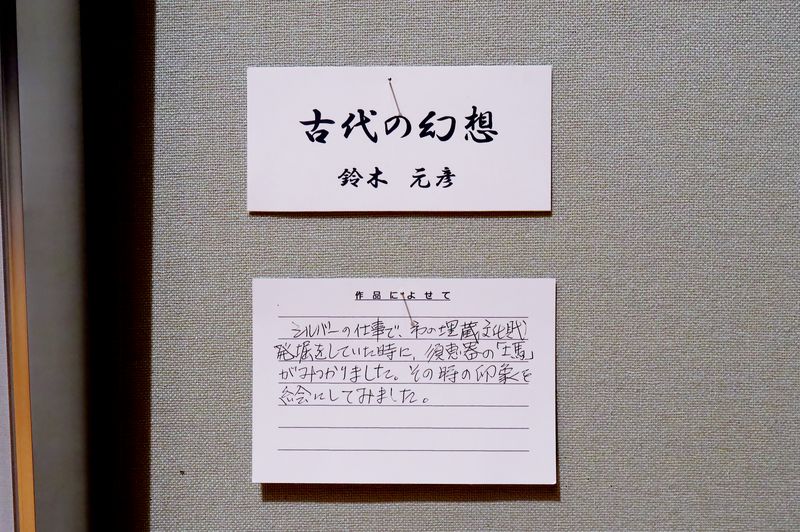 古代の幻想
鈴木 元彦
作品によせて
シルバーの仕事で、市の埋蔵文化財
発堀をしていた時に、須恵器の「土馬」
がみつかりました。その時の印象を
絵にしてみました。